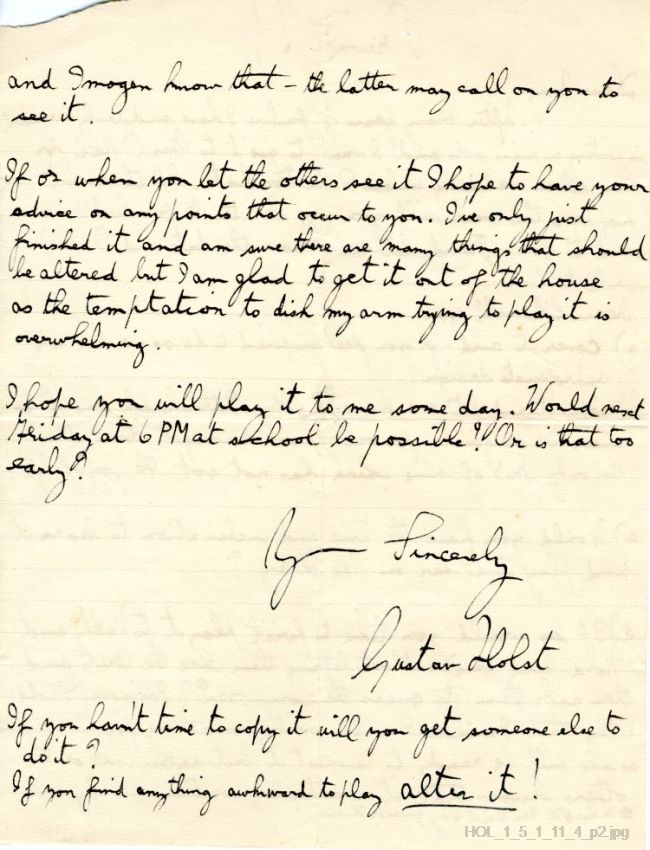 and Imogen know that – the latter may call on you to
see it.
If or when you let the others see it I hope to have your
advice on any points that occur to you. I've only just
finished it and am sure there are many things that should
be altered but I am glad to get it out of the house
as the temptation to dish my arm trying to play it is
overwhelming.
I hope you will play it to me some day. Would next
Friday at 6 PM at school be possible? Or is that too
early?
Sincerely
Gustav Holst
If you haven't time to copy it will you get someone else to
do it?
If you find anything awkward to play alter it!
HOL_1_5_1_11_4_p2.jpg